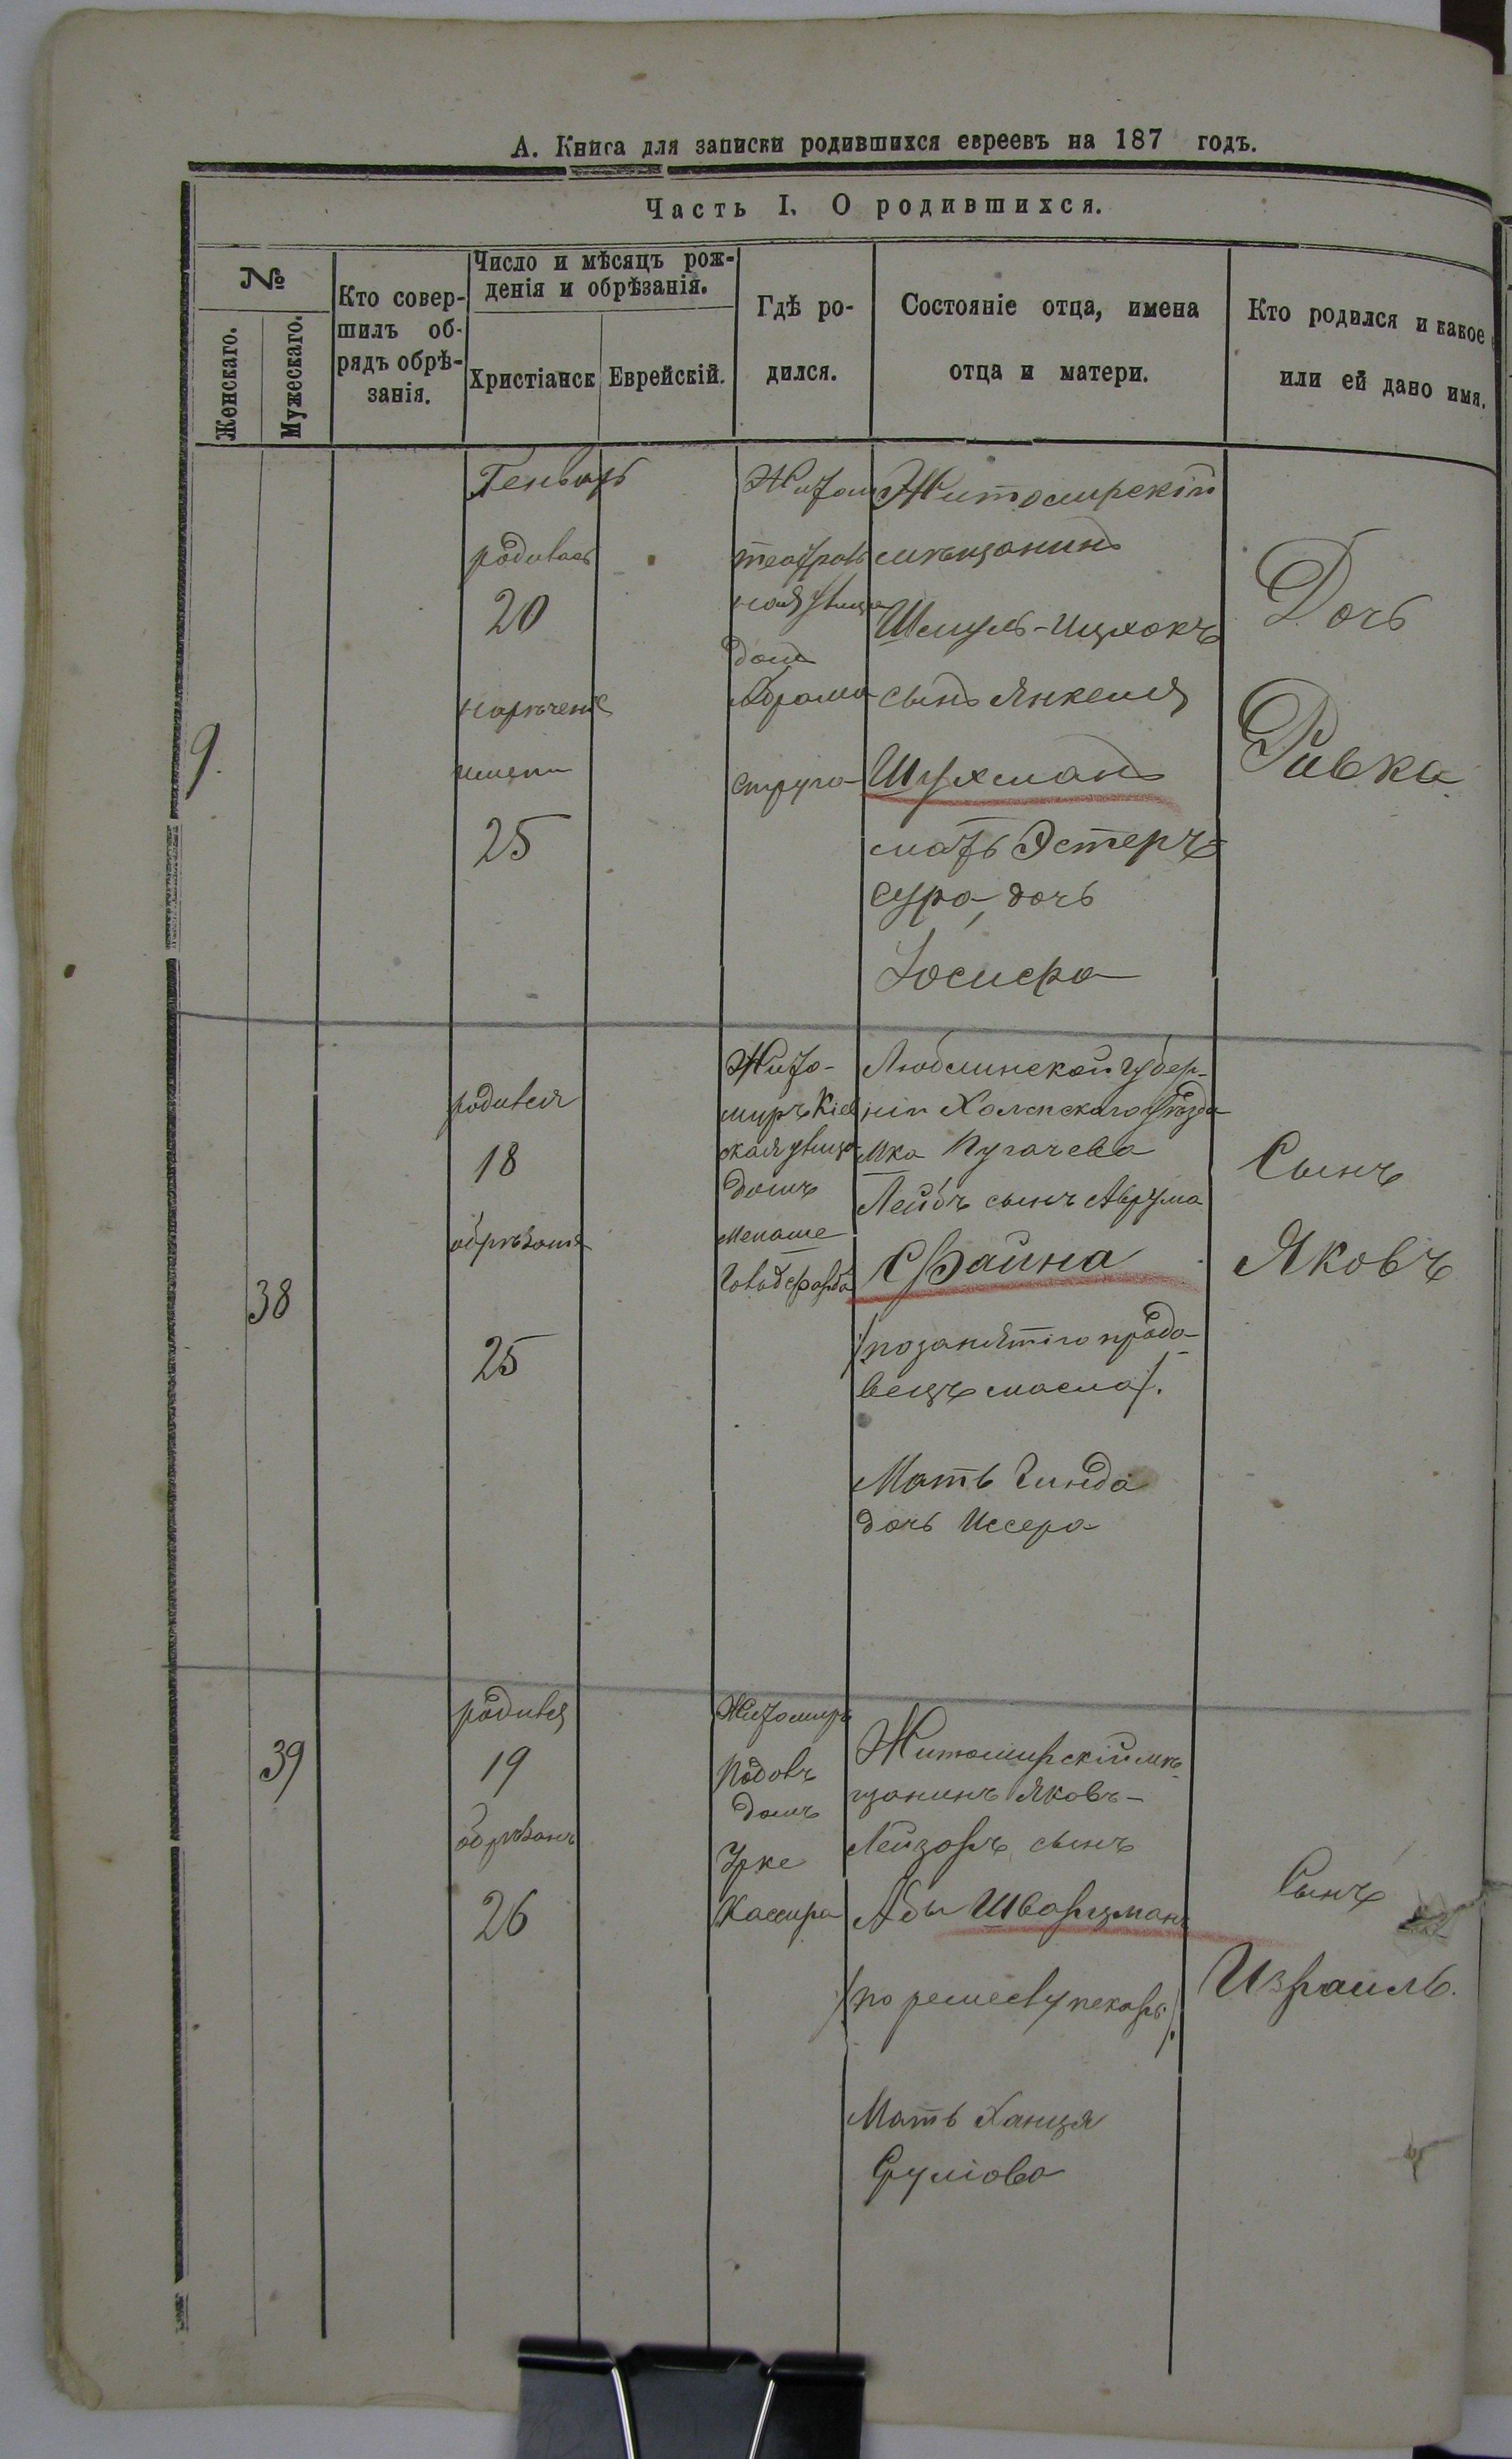 А. Книга для записки родившихся евреевъ на 187 годъ.
Часть I. О родившихся.
№
Женскаго.
Мужескаго.
Кто совер-
шилъ об-
рядъ обрѣ-
занія.
Число и мѣсяцъ рож-
денія и обрѣзанія.
Христіанск
Еврейскій.
Гдѣ ро-
дился.
Состояніе отца, имена
отца и матери.
Кто родился и какое
или ей дано имя.
9.
Генварь
родилась
20
наречение
имени
25
Житом
театраль
ная улица
домъ
Абрама
Струга
Житомирскій
мѣщанинъ
Шмуль-Ицхокъ
сынъ Янкеля
Шухманъ
мать Эстеръ
Сура, дочь
Іосифа
Дочь
Ривка
38
родился
18
обрѣзанія
25
Жито-
миръ Кіев
ская улица
домъ
Менаше
Люблинской губер-
ніи Холмскаго уѣзда
Мка Пугачева
Лейбъ сынъ Аврума
Файна
/по занятію продо-
вецъ масла/.
Мать Гинда
дочь Иссера
Сынъ
Яковъ
39
родился
19
обрѣзанъ
26
Житомиръ
Подолъ
домъ
Урке
Кашира
Житомирскій мѣ-
щанинъ Яковъ-
Лейзоръ сынъ
Абы Шварцманъ
/по ремеслу пекарь/.
Мать Ханця
Срулiова
Сынъ
Израиль.